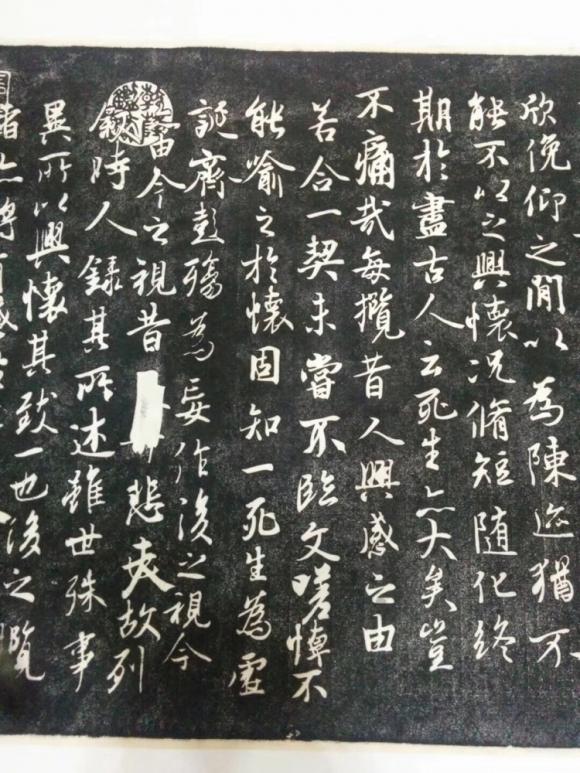 欣俛仰之閒以為陳迹猶不
能不以之興懷況脩短隨化終
期於盡古人云死生亦大矣豈
不痛哉每攬昔人興感之由
若合一契未嘗不臨文嗟悼不
能喻之於懷固知一死生為虛
誕齊彭殤為妄作後之視今
由今之視昔悲夫故列
敘時人錄其所述雖世殊事
異所以興懷其致一也後之攬
者亦將有感